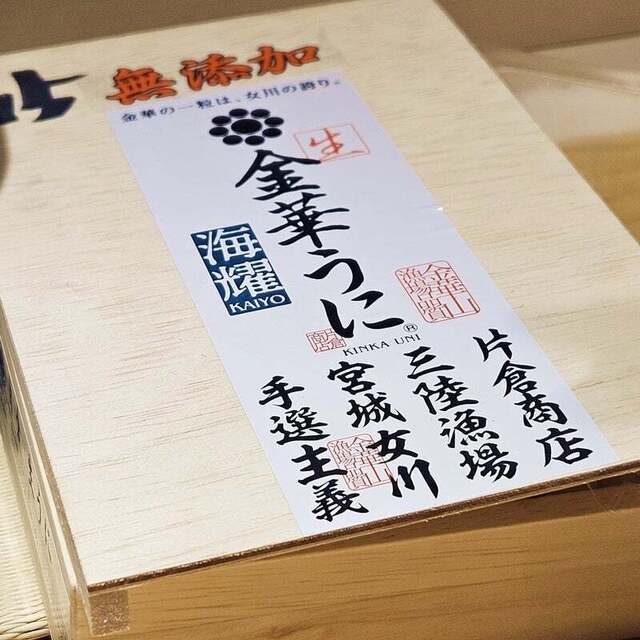 無添加
金華の一粒は、女川の誇り。
生
金華うに®
KINKA UNI
海耀
KAIYO
片倉商店
三陸漁場
宮城女川
手選主義